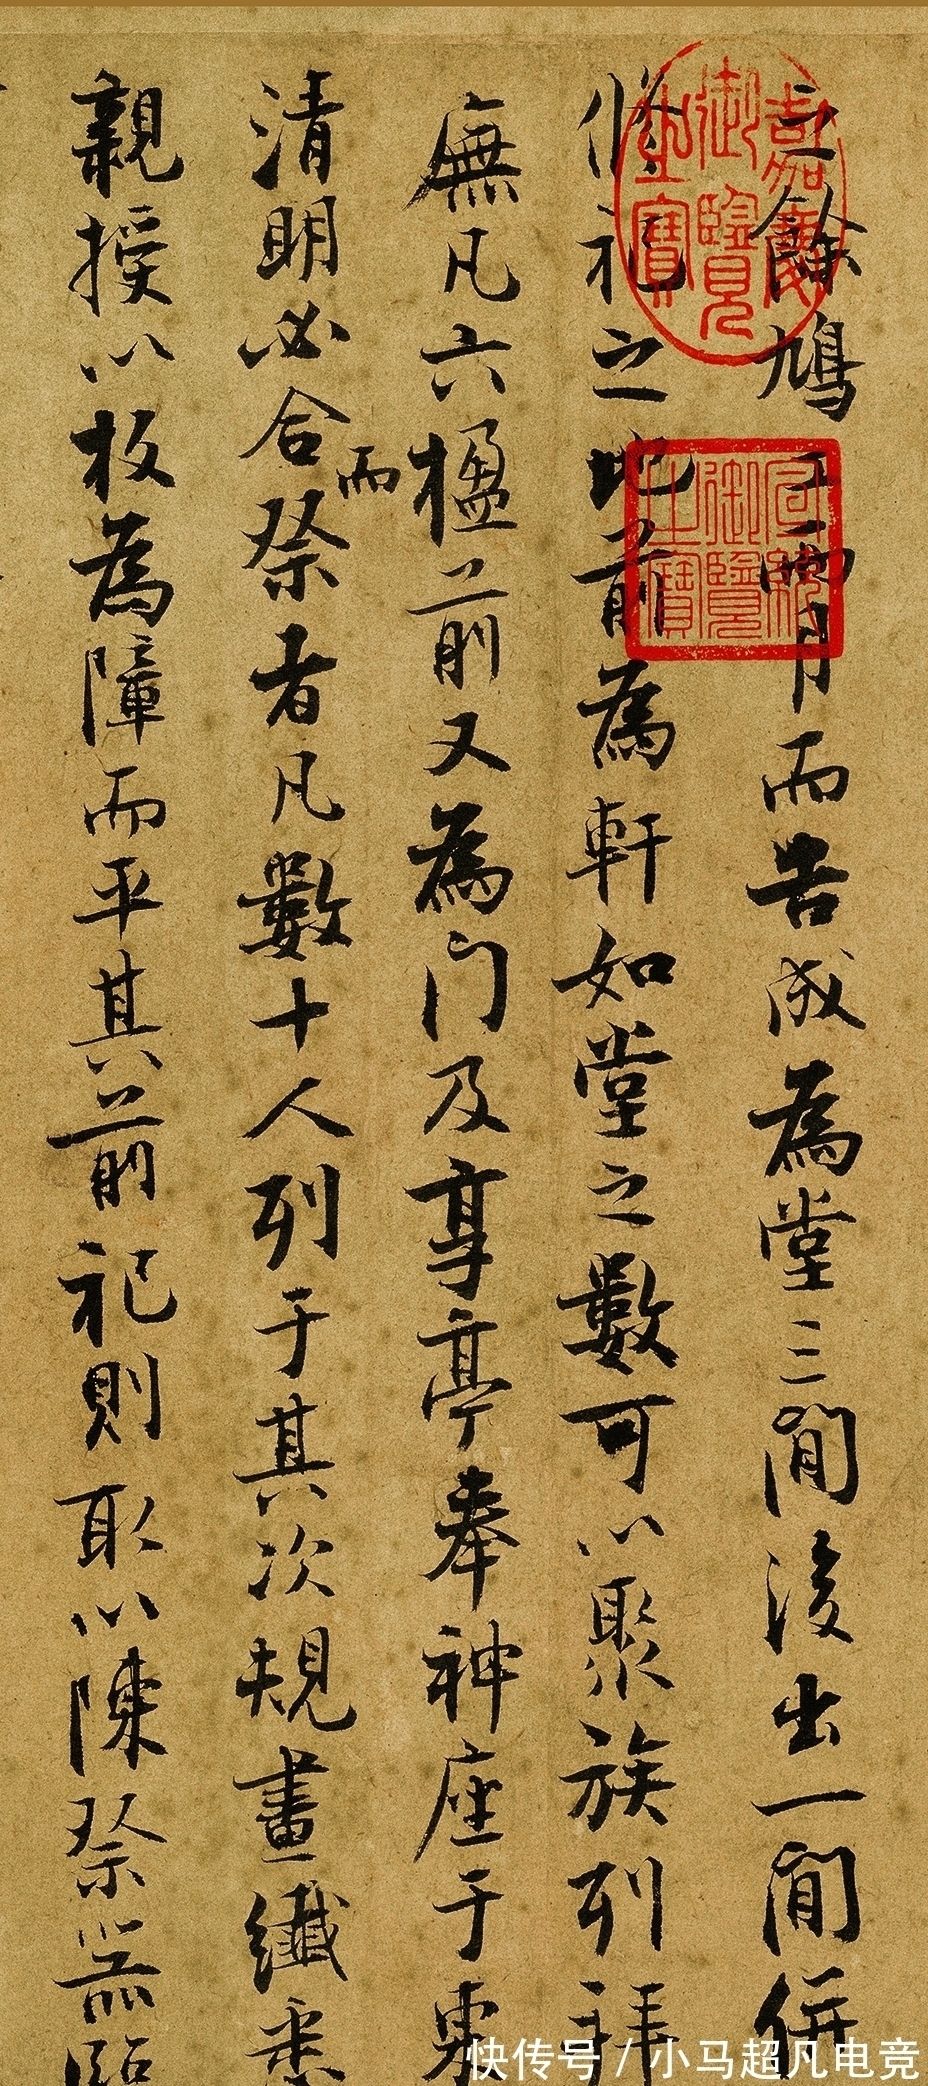 之餘鳩工兩月而告成為堂三間後出一間併
修祀之地前為軒如堂之數可以聚族列拜
廡凡六楹前又為門及享亭奉神座于東
清明必合祭者凡數十人列于其次規畫纖悉
而
親授以板為障而平其前祀則取以陳祭器臨
嘉慶御覽之寶
宣統御覽之寶
快传号/小马超凡电竞